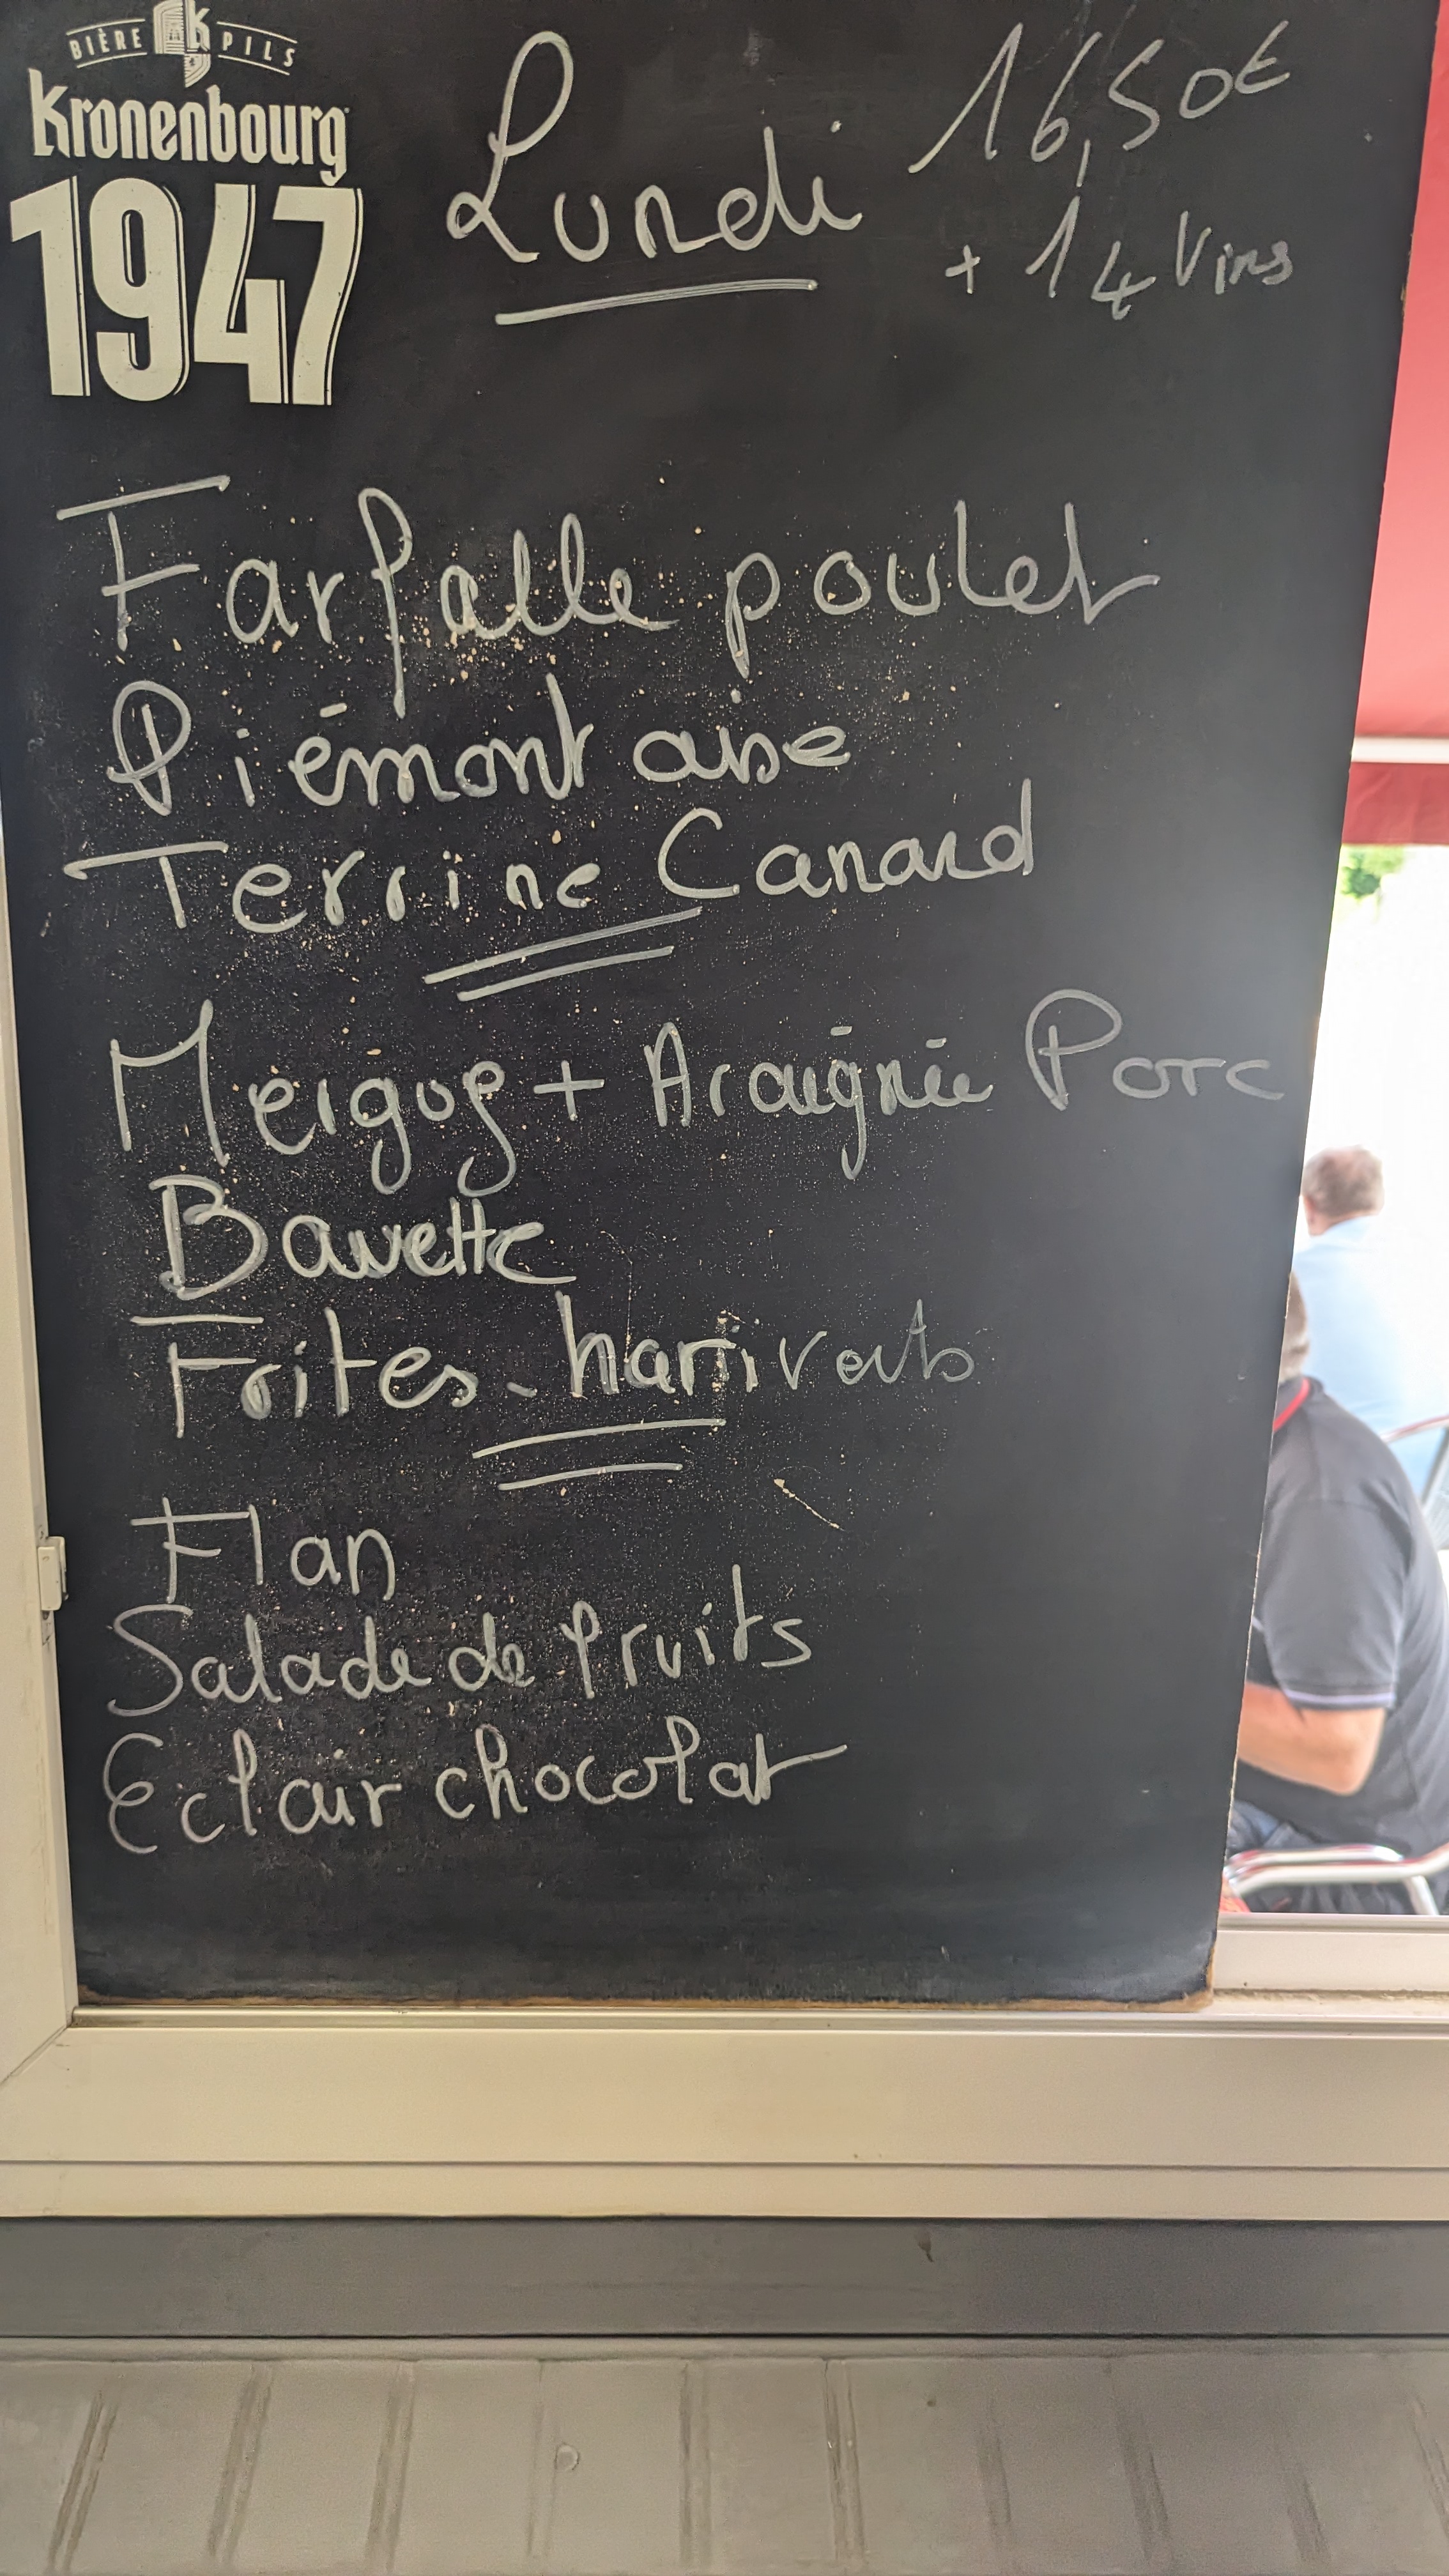 BIÈRE K PILS
Kronenbourg
1947
Lundi 16,50€
+ 1 4 Vins
Farfalle poulet
Piémontaise
Terrine Canard
Merguez + Araignée Porc
Bavette
Frites - hari verts
Flan
Salade de fruits
Eclair chocolat